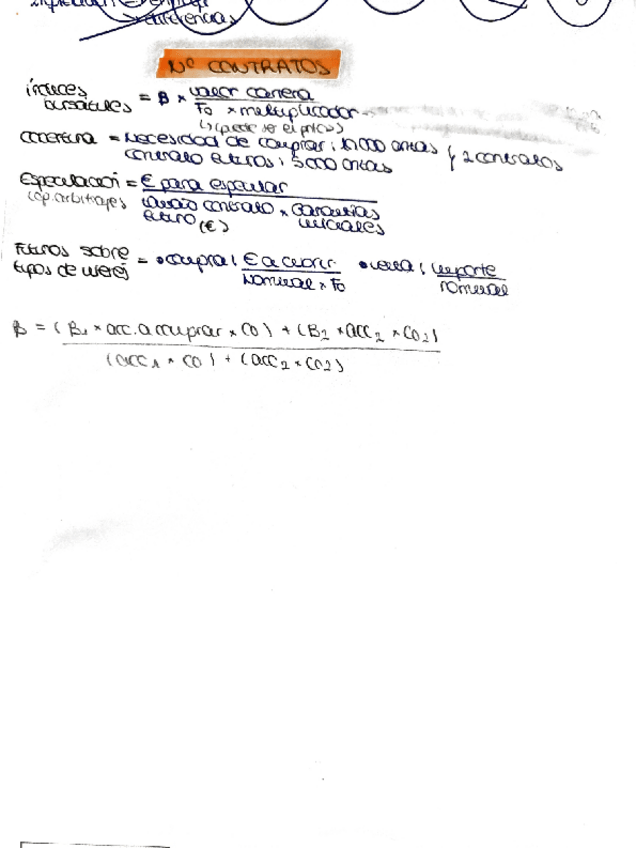 Nº CONTRATOS
índices bursátiles = B × valor cartera / F0 × multiplicador
↳ (puede ser el precio)
cobertura = Necesidad de comprar: 10.000 onzas } 2 contratos
contrato futuros: 5.000 onzas
Especulación = € para especular / tamaño contrato futuro (€) × Garantías iniciales
(op. arbitraje)
Futuros sobre tipos de interés = • compra: € a cubrir / Nominal × F0 • venta: importe / nominal
B = (B1 × acc. a comprar × C0) + (B2 × acc2 × C02)
(acc1 × C0) + (acc2 × C02)